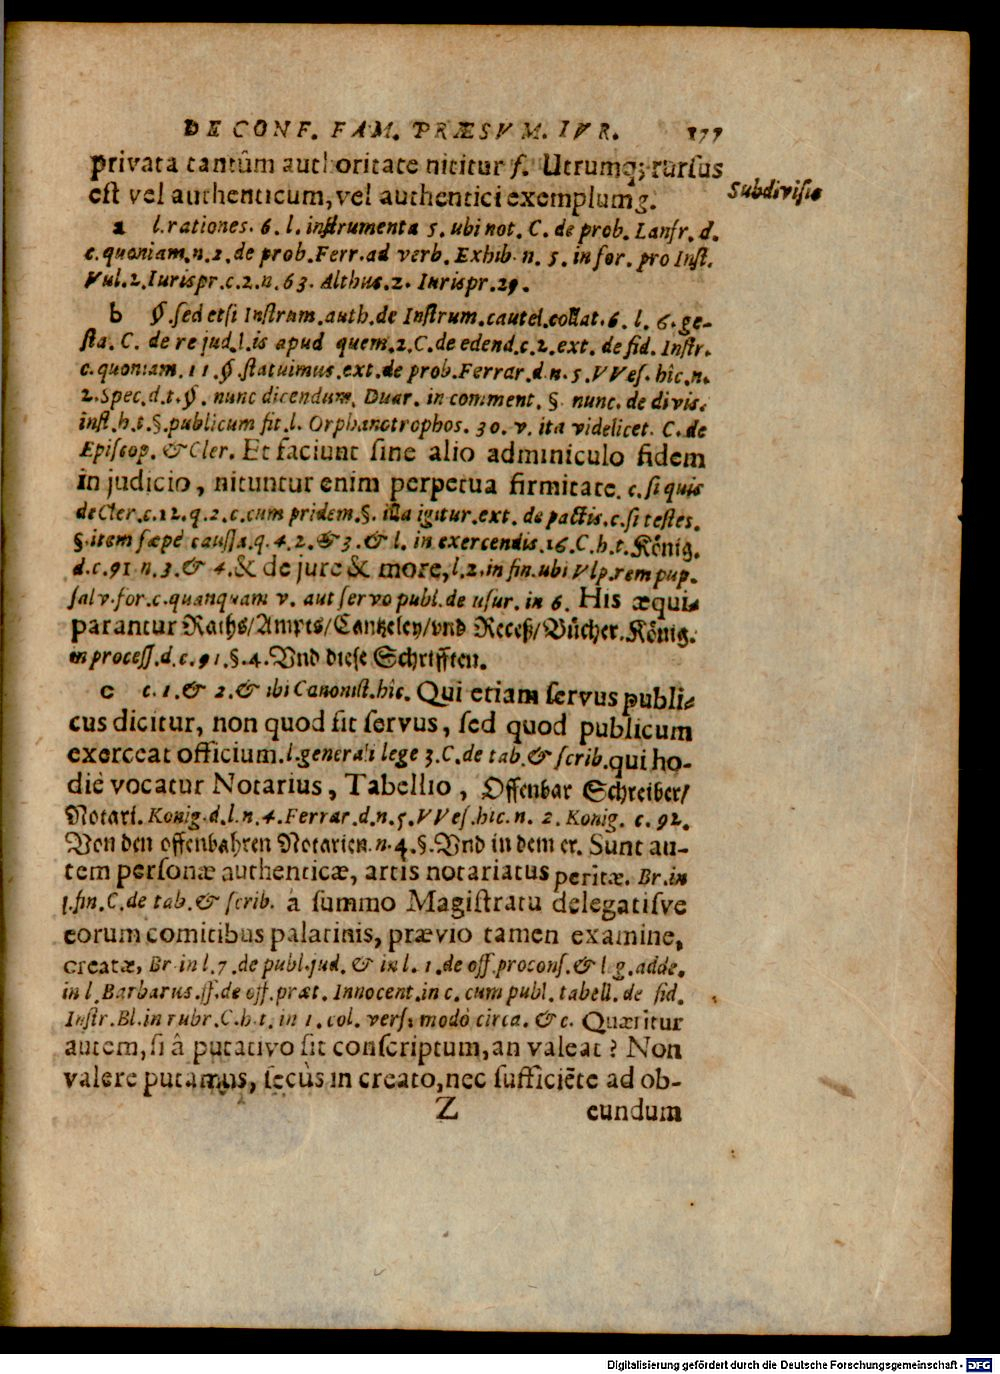 DE CONF. FAM. PRÆSVM. IVR. 177
privata tantûm authoritate nititur f. Utrumq; rursus
est vel authenticum, vel authentici exemplum g.
Subdivisio
a l. rationes. 6. l. instrumenta 5. ubi not. C. de prob. Lanfr. d.
c. quoniam. n. 2. de prob. Ferr. ad verb. Exhib. n. 5. in for. pro Inst.
Vul. 2. Iurispr. c. 2. n. 63. Althus. 2. Iurispr. 29.
b §. sed etsi Instrum. auth. de Instrum. cautel. collat. 6. l. 6. ge-
sta. C. de re jud. l. is apud quem. 2. C. de edend. c. 2. ext. de fid. Instr.
c. quoniam. 11. §. statuimus. ext. de prob. Ferrar. d. n. 5. VVes. hîc. n.
2. Spec. d. t. §. nunc dicendum. Duar. in comment. §. nunc. de divis.
inst. h. t. §. publicum sit. l. Orphanotrophos. 30. v. ita videlicet. C. de
Episcop. & Cler. Et faciunt sine alio adminiculo fidem
in judicio, nituntur enim perpetua firmitate. c. si quis
de Cler. c. 12. q. 2. c. cum pridem. §. illa igitur. ext. de pactis. c. si testes.
§. item sæpè caussa. q. 4. 2. & 3. & l. in exercendis. 16. C. h. t. König.
d. c. 91 n. 3. & 4. & de jure & more, l. 2. in fin. ubi Vlp. rem pup.
salv. for. c. quanquam v. aut servo publ. de usur. in 6. His æqui-
parantur Raths/Ampts/Cantzeley/vnd Receß/Bücher. König.
in process. d. c. 91. §. 4. Vnd diese Schrifften.
c c. 1. & 2. & ibi Canonist. hîc. Qui etiam servus publi-
cus dicitur, non quod sit servus, sed quod publicum
exerceat officium. l. generali lege 3. C. de tab. & scrib. qui ho-
diè vocatur Notarius, Tabellio, Offenbar Schreiber/
Notari. Konig. d. l. n. 4. Ferrar. d. n. 5. VVes. hîc. n. 2. Konig. c. 92.
Von den offenbahren Notarien. n. 4. §. Vnd in dem er. Sunt au-
tem personæ authenticæ, artis notariatus peritæ. Br. in
l. fin. C. de tab. & scrib. à summo Magistratu delegatisve
eorum comitibus palatinis, prævio tamen examine,
creatæ, Br. in l. 7. de publ. jud. & in l. 1. de off. procons. & leg. adde.
in l. Barbarus. ff. de off. præt. Innocent. in c. cum publ. tabell. de fid.
Instr. Bl. in rubr. C. h. t. in 1. col. vers. modò circa. & c. Quæritur
autem, si â putativo sit conscriptum, an valeat? Non
valere putamus, secùs in creato, nec sufficiẽte ad ob-
Z eundum
Digitalisierung gefördert durch die Deutsche Forschungsgemeinschaft - DFG